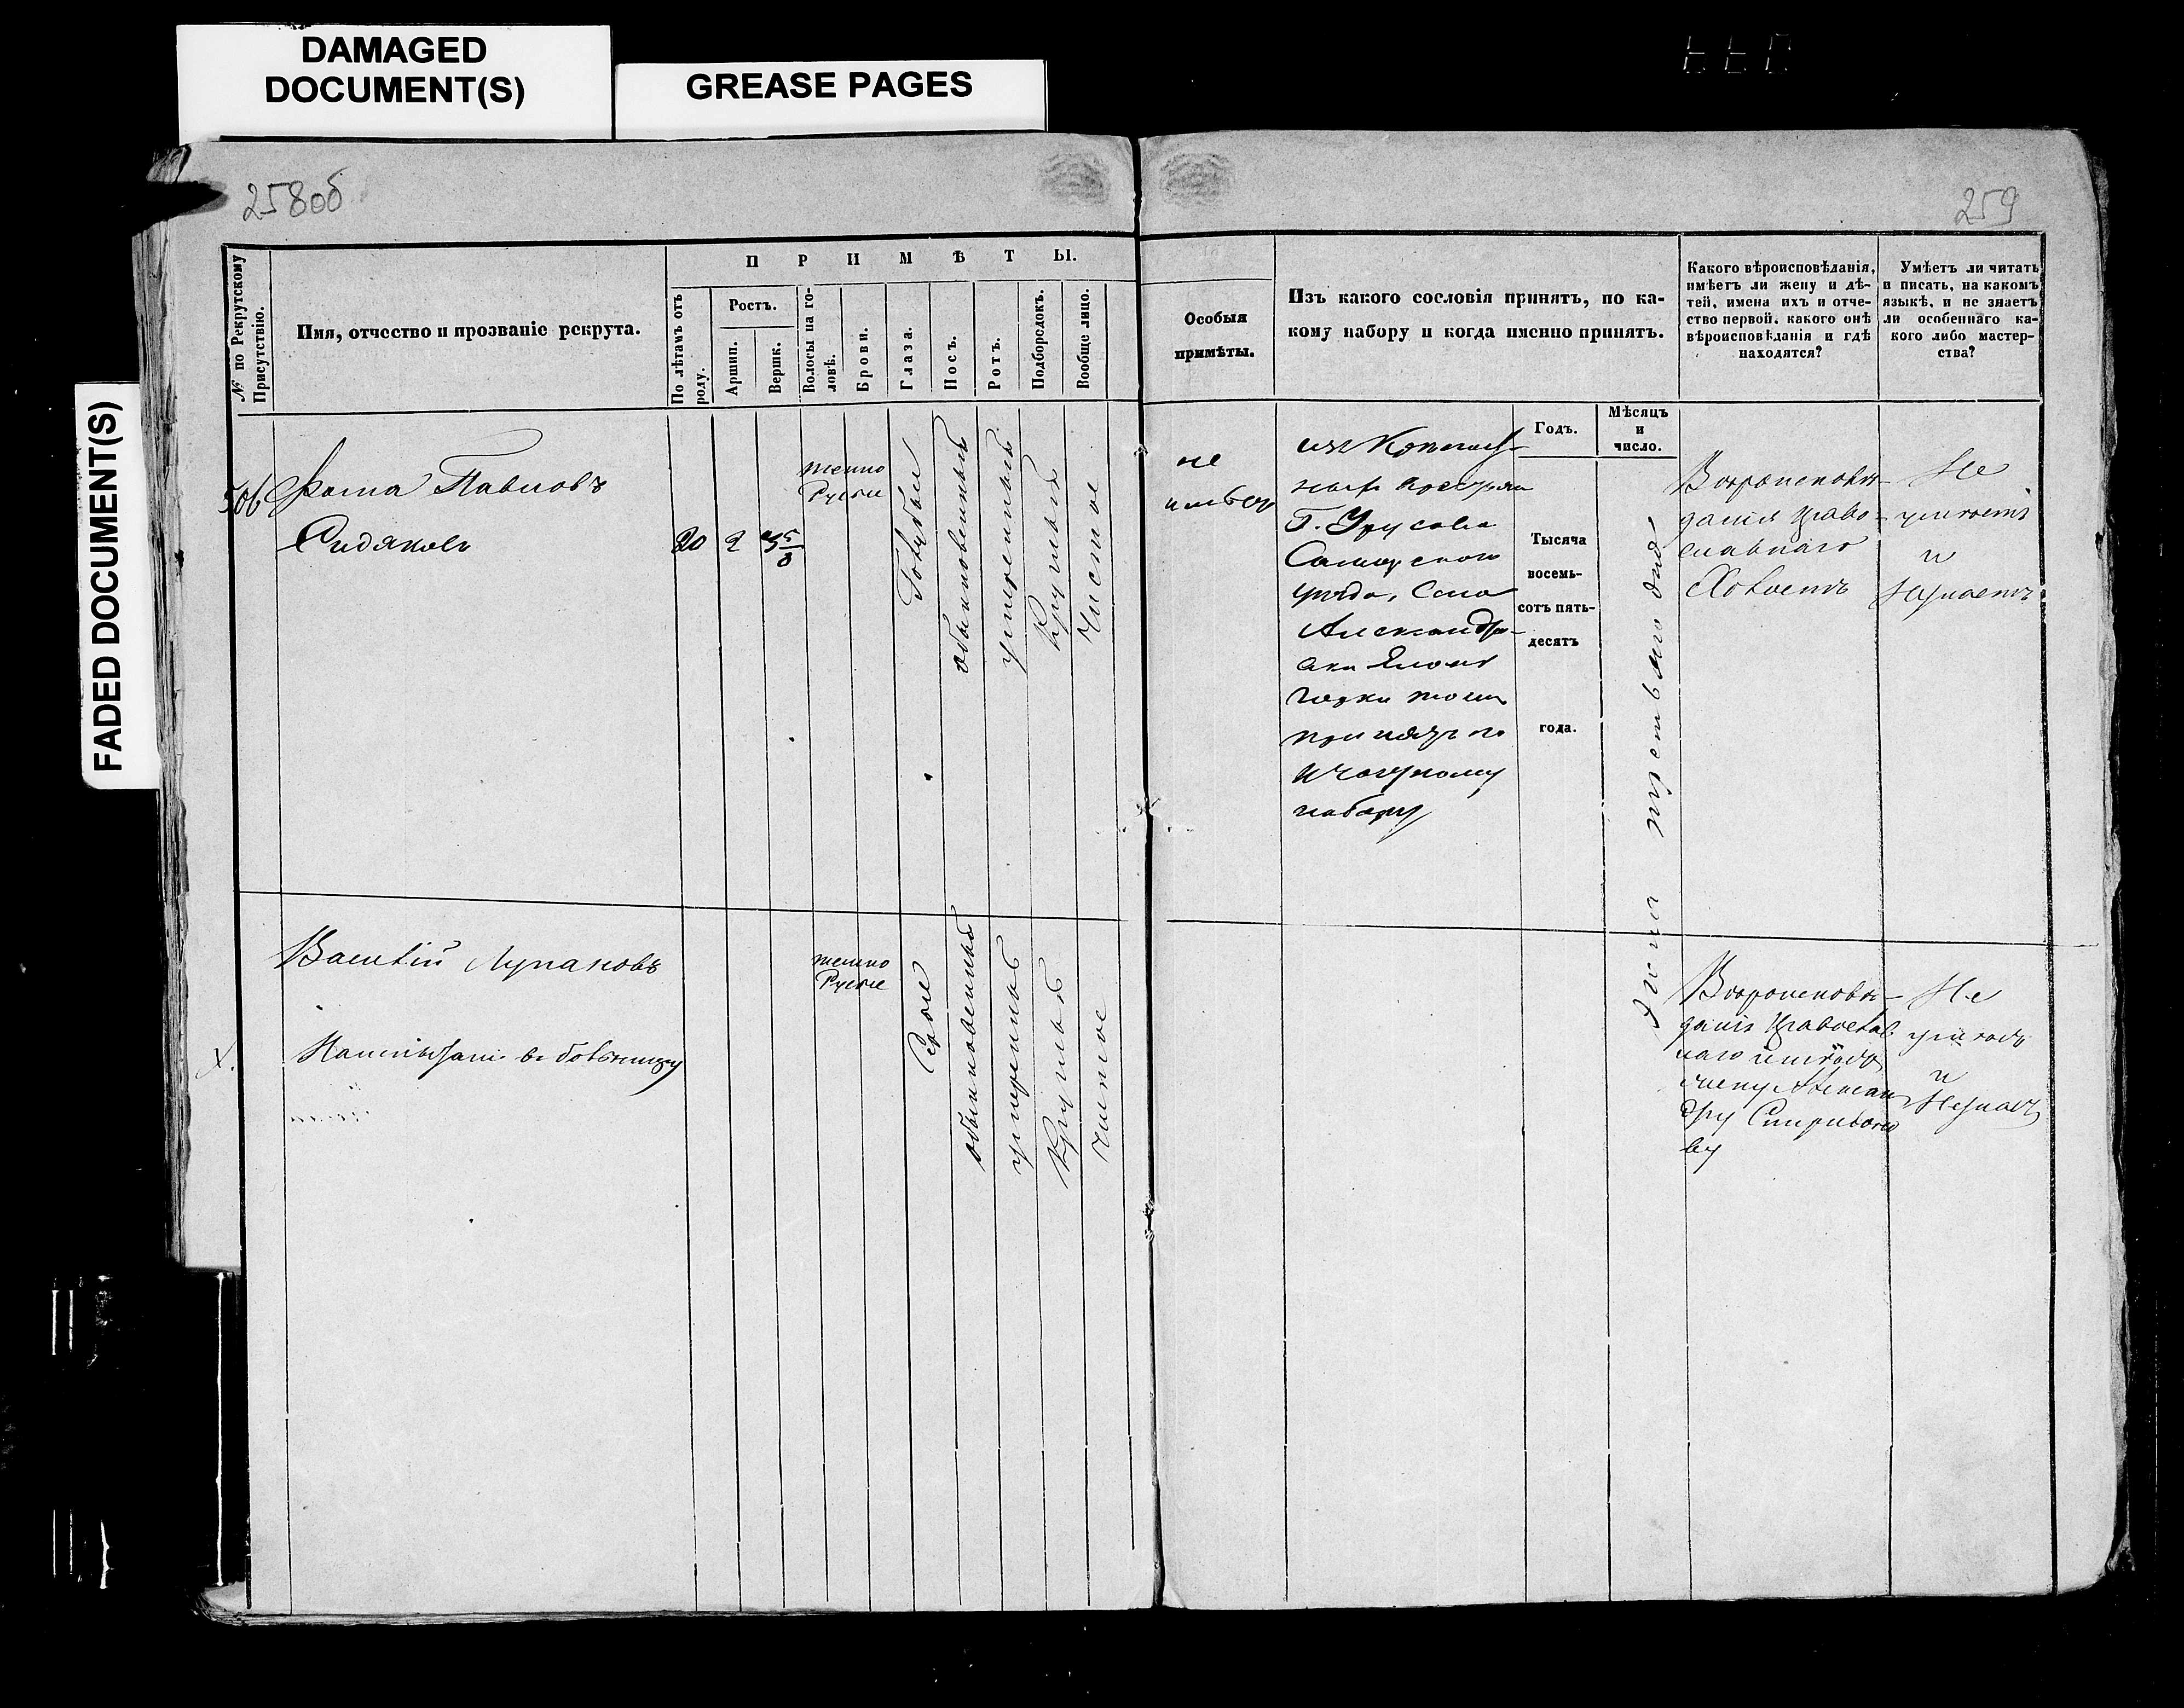 DAMAGED
DOCUMENT(S)
GREASE PAGES
FADED DOCUMENT(S)
258об
259
№ по Рекрутскому
Присутствію.
Имя, отчество и прозваніе рекрута.
ПРИМѢТЫ.
По лѣтамъ отъ
роду.
Ростъ.
Аршин.
Вершк.
Волосы на го-
ловѣ.
Брови.
Глаза.
Носъ.
Ротъ.
Подбородокъ.
Вообще лицо.
Особыя
примѣты.
Изъ какого сословія принятъ, по ка-
кому набору и когда именно принятъ.
Какого вѣроисповѣданія,
имѣетъ ли жену и дѣ-
тей, имена ихъ и отче-
ство первой, какого онѣ
вѣроисповѣданія и гдѣ
находятся?
Умѣетъ ли читать
и писать, на какомъ
языкѣ, и не знаетъ
ли особеннаго ка-
кого либо мастер-
ства?
Годъ.
Мѣсяцъ
и
число.
506
Фома Павловъ
Сидяковъ
20
2
3 5/8
темно
Русые
Голубые
обыкновенный
умеренный
Круглый
Чистое
не
имѣетъ
Г. Урусова
Самарского
уѣзда, Села
Александро-
принятъ по
набору
Тысяча
восемь-
сотъ пять-
десятъ
года.
третьяго дня
Вѣроисповѣ-
данія Право-
славнаго
Холостъ
Не
умѣетъ
и
незнаетъ
Василій Лупаковъ
въ больницу
темно
Русые
Серые
обыкновенный
умеренный
Круглый
Чистое
Вѣроисповѣ-
данія Православ
наго имѣетъ
жену Алексан
дру Спиридоно
ву
Не
умѣетъ
и
Незнаетъ